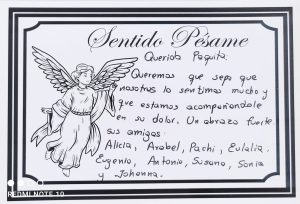 Sentido Pésame
Querida Paquita:
Queremos que sepa que
nosotros lo sentimos mucho y
que estamos acompañandole
en su dolor. Un abrazo fuerte
sus amigos:
Alicia, Arabel, Pachi, Eulalia.
Eugenio, Antonio, Susana, Sonia
y Johanna.
REDMI NOTE 10